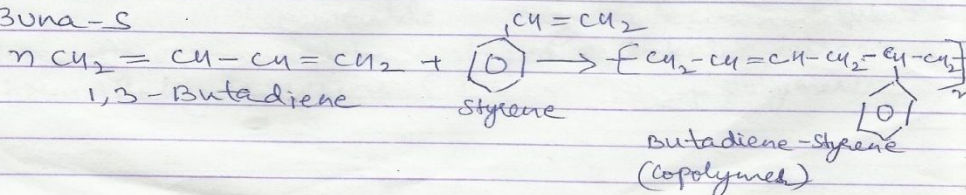 Buna-S
CH = CH2
n CH2 = CH - CH = CH2 + → [CH2-CH=CH-CH2-CH-CH2]n
1,3-Butadiene
Styrene
Butadiene-Styrene
(Copolymer)